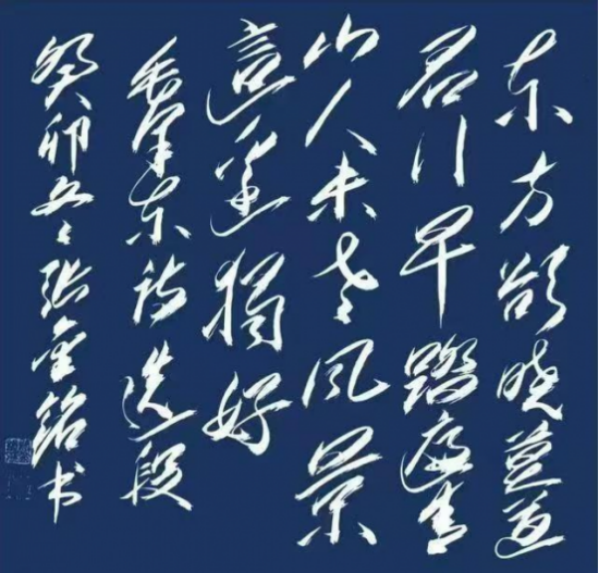 东方欲晓莫道
君行早踏遍青
山人未老风景
這邊獨好
毛泽东诗选段
癸卯冬张金铭书